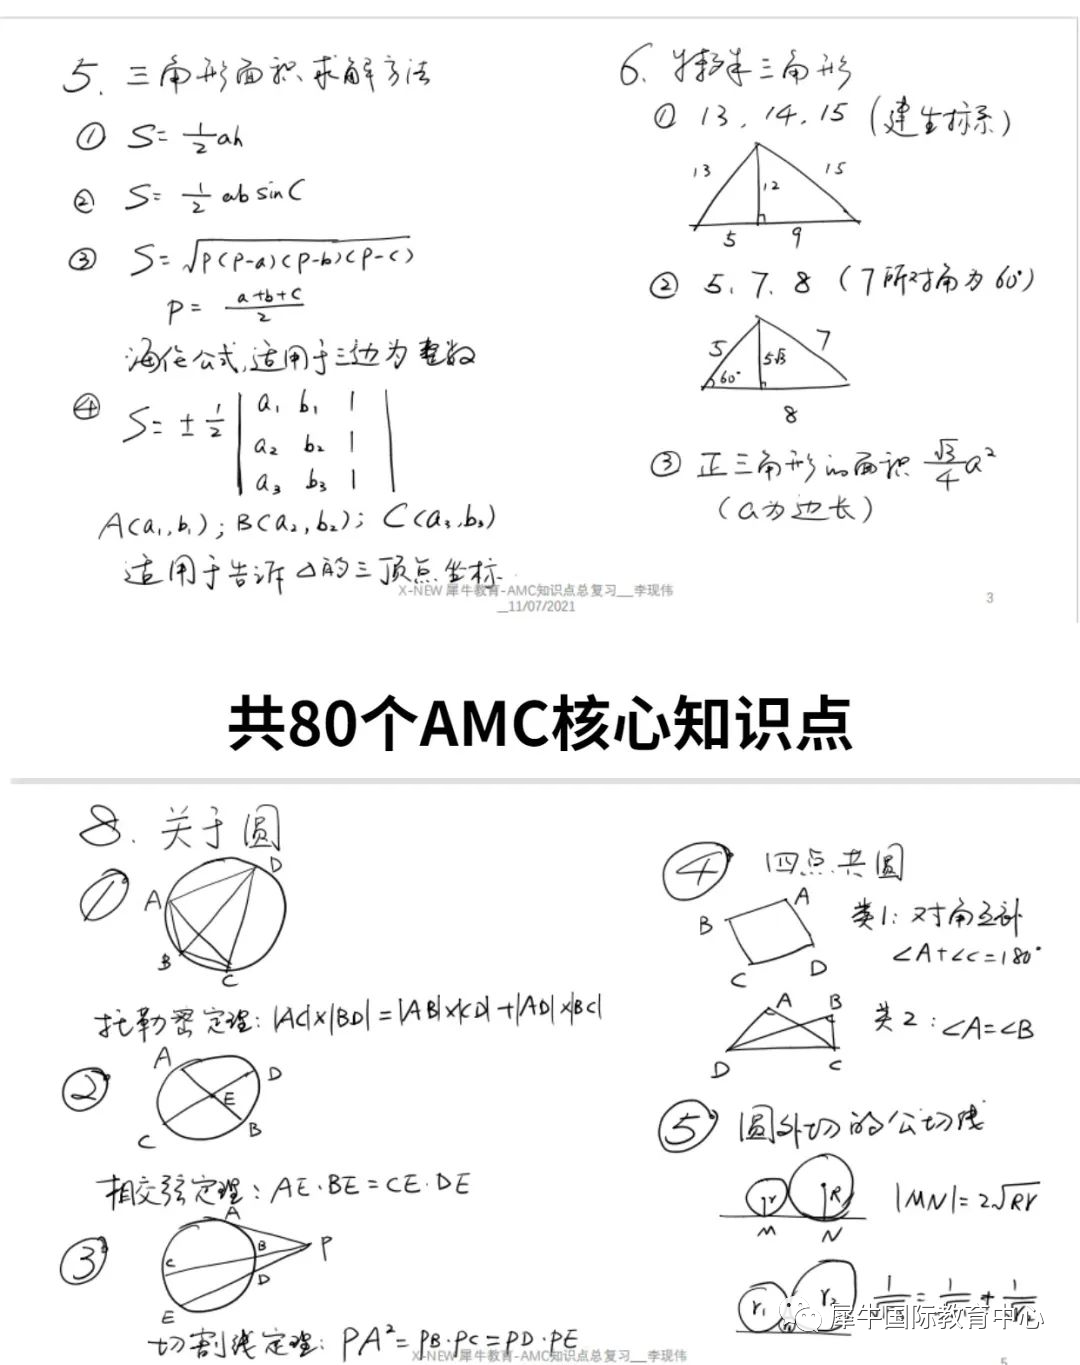 5. 三角形面积求解方法
① S= 1/2 ah
② S= 1/2 ab sinC
③ S=√P(P-a)(P-b)(P-c)
P= a+b+c/2
海伦公式,适用于三边为整数
④ S=± 1/2 | a₁ b₁ 1 |
a₂ b₂ 1
a₃ b₃ 1
A(a₁,b₁); B(a₂,b₂); C(a₃,b₃)
适用于告诉△的三顶点坐标
6. 特殊三角形
① 13, 14, 15 (建坐标系)
13 12 15
5 9
② 5, 7, 8 (7所对角为60°)
5 5√3 7
60°
8
③ 正三角形的面积 √3/4 a²
(a为边长)
X-NEW 犀牛教育-AMC知识点总复习__李现伟
__11/07/2021
3
共80个AMC核心知识点
8. 关于圆
①
A D
B C
托勒密定理: |AC|×|BD|=|AB|×|CD|+|AD|×|BC|
②
A D
E
C B
相交弦定理: AE·BE=CE·DE
③
A
C B P
D
E
切割线定理: PA²=PB·PC=PD·PE
④ 四点共圆
A
B
C D
类1: 对角互补
∠A+∠C=180°
A B
D C
类2: ∠A=∠B
⑤ 圆外切的公切线
r R
M N
|MN|=2√Rr
r₁ r₂
犀牛国际教育中心
X-NEW 犀牛教育-AMC知识点总复习__李现伟
5